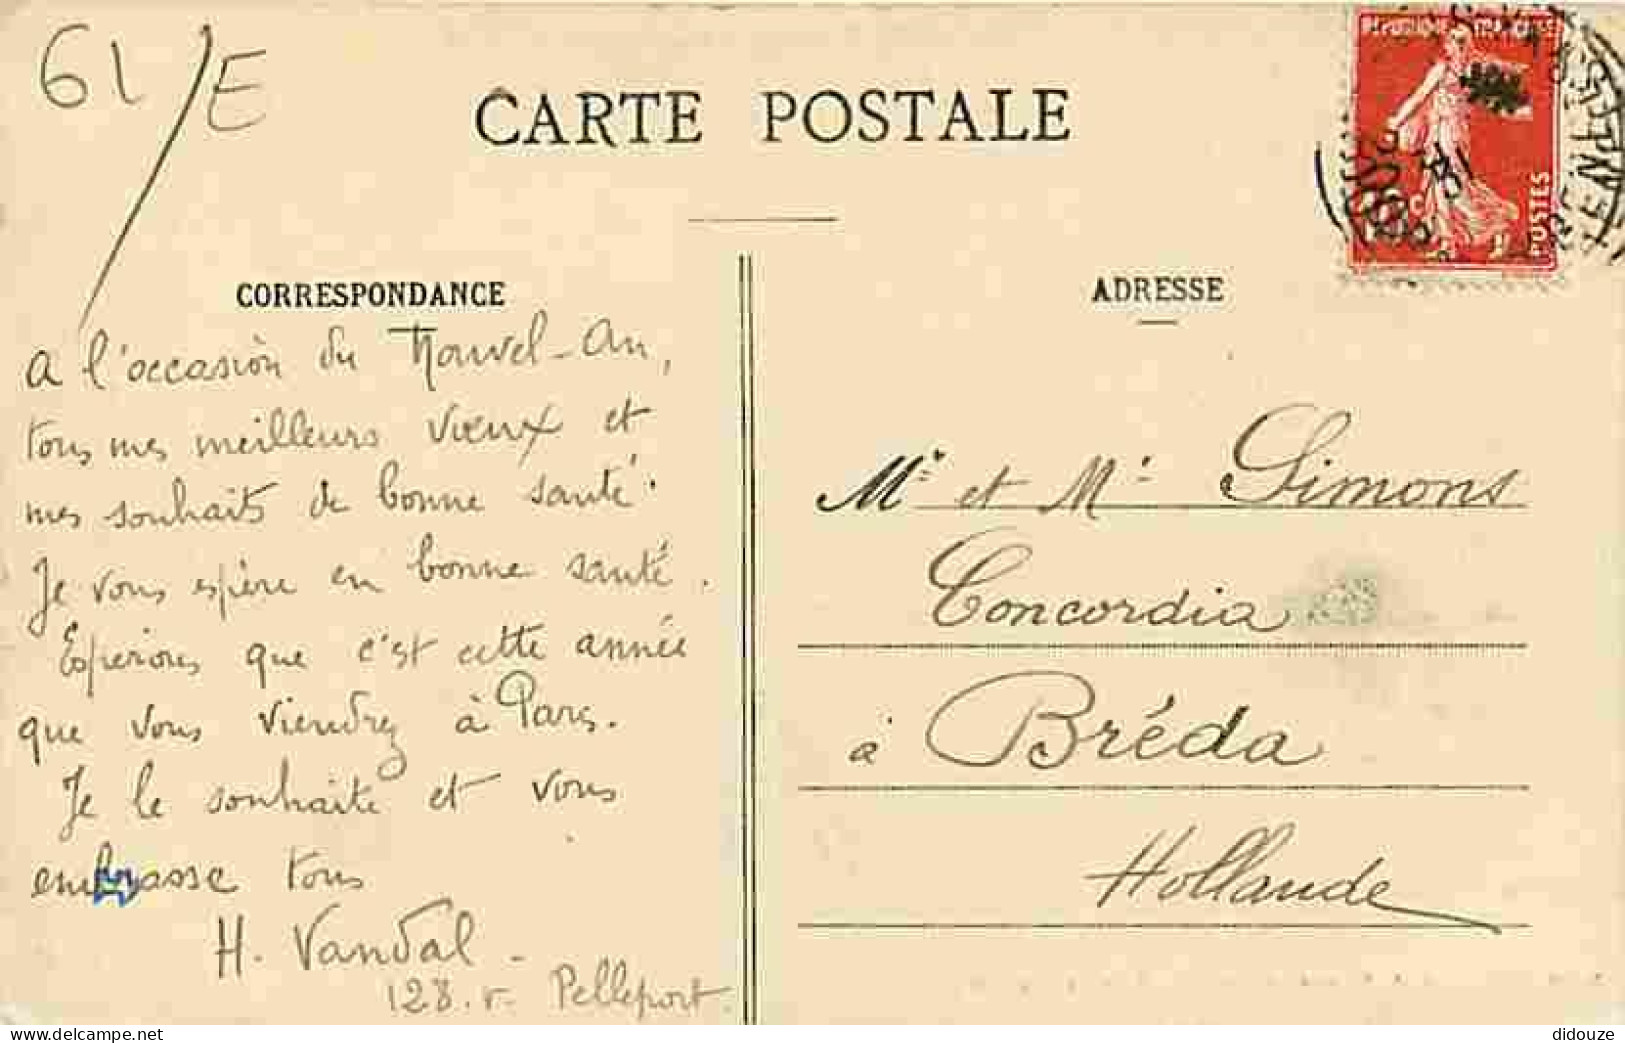 61/E
CARTE POSTALE
CORRESPONDANCE
a l'occasion du Nouvel-An,
tous mes meilleurs vœux et
mes souhaits de bonne santé.
Je vous espère en bonne santé.
Esperons que c'est cette année
que vous viendrez à Paris.
Je le souhaite et vous
embrasse tous
H. Vandal -
128. r. Pelleport
REPUBLIQUE FRANÇAISE
POSTES
ADRESSE
Mr et Me Simons
Concordia
à Bréda
Hollande
delcampe.net
didouze